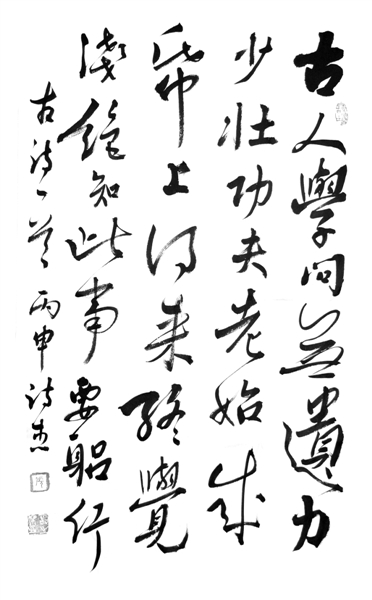 古人學問無遺力
少壯功夫老始成
帋上得来終覺
淺絕知此事要躳行
古诗一首 丙申 诗杰